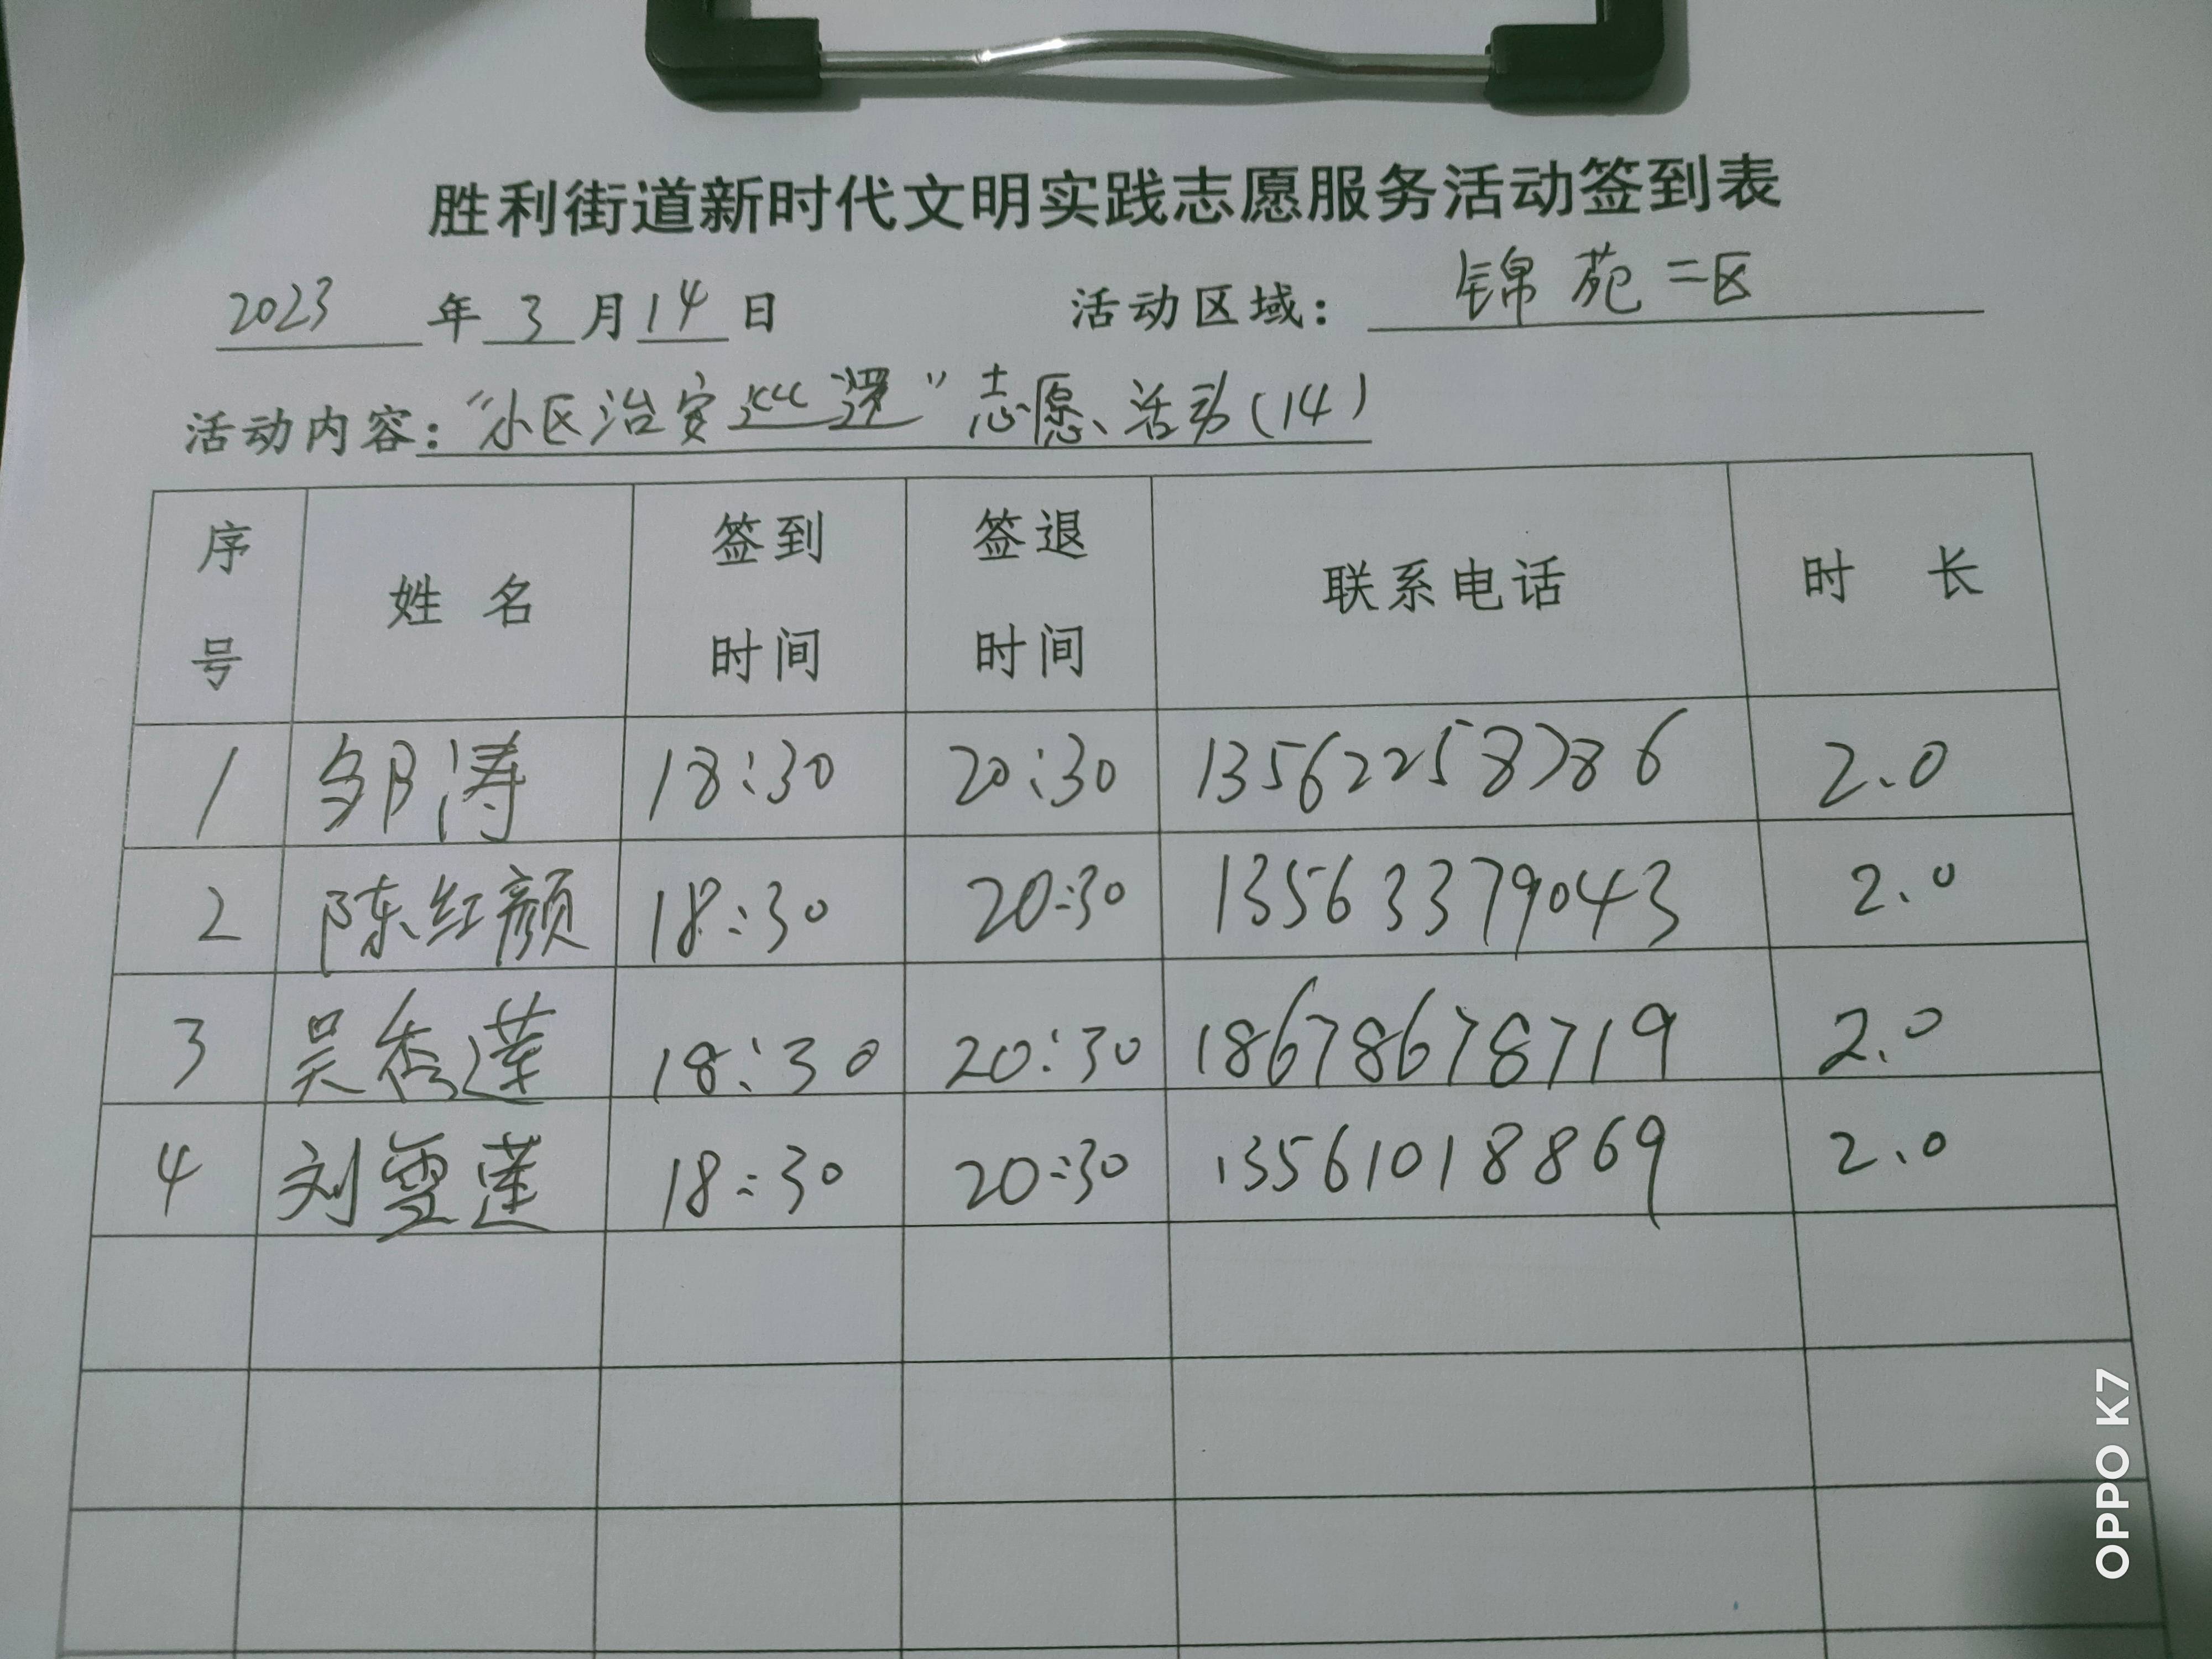 胜利街道新时代文明实践志愿服务活动签到表
2023 年 3 月 14 日 活动区域： 锦苑二区
活动内容：“小区治安巡逻”志愿活动(14)
序号 姓名 签到时间 签退时间 联系电话 时长
1 邹涛 18:30 20:30 13562258786 2.0
2 陈红颜 18:30 20:30 13563379043 2.0
3 吴秀莲 18:30 20:30 18678678719 2.0
4 刘雪莲 18:30 20:30 13561018869 2.0
OPPO K7